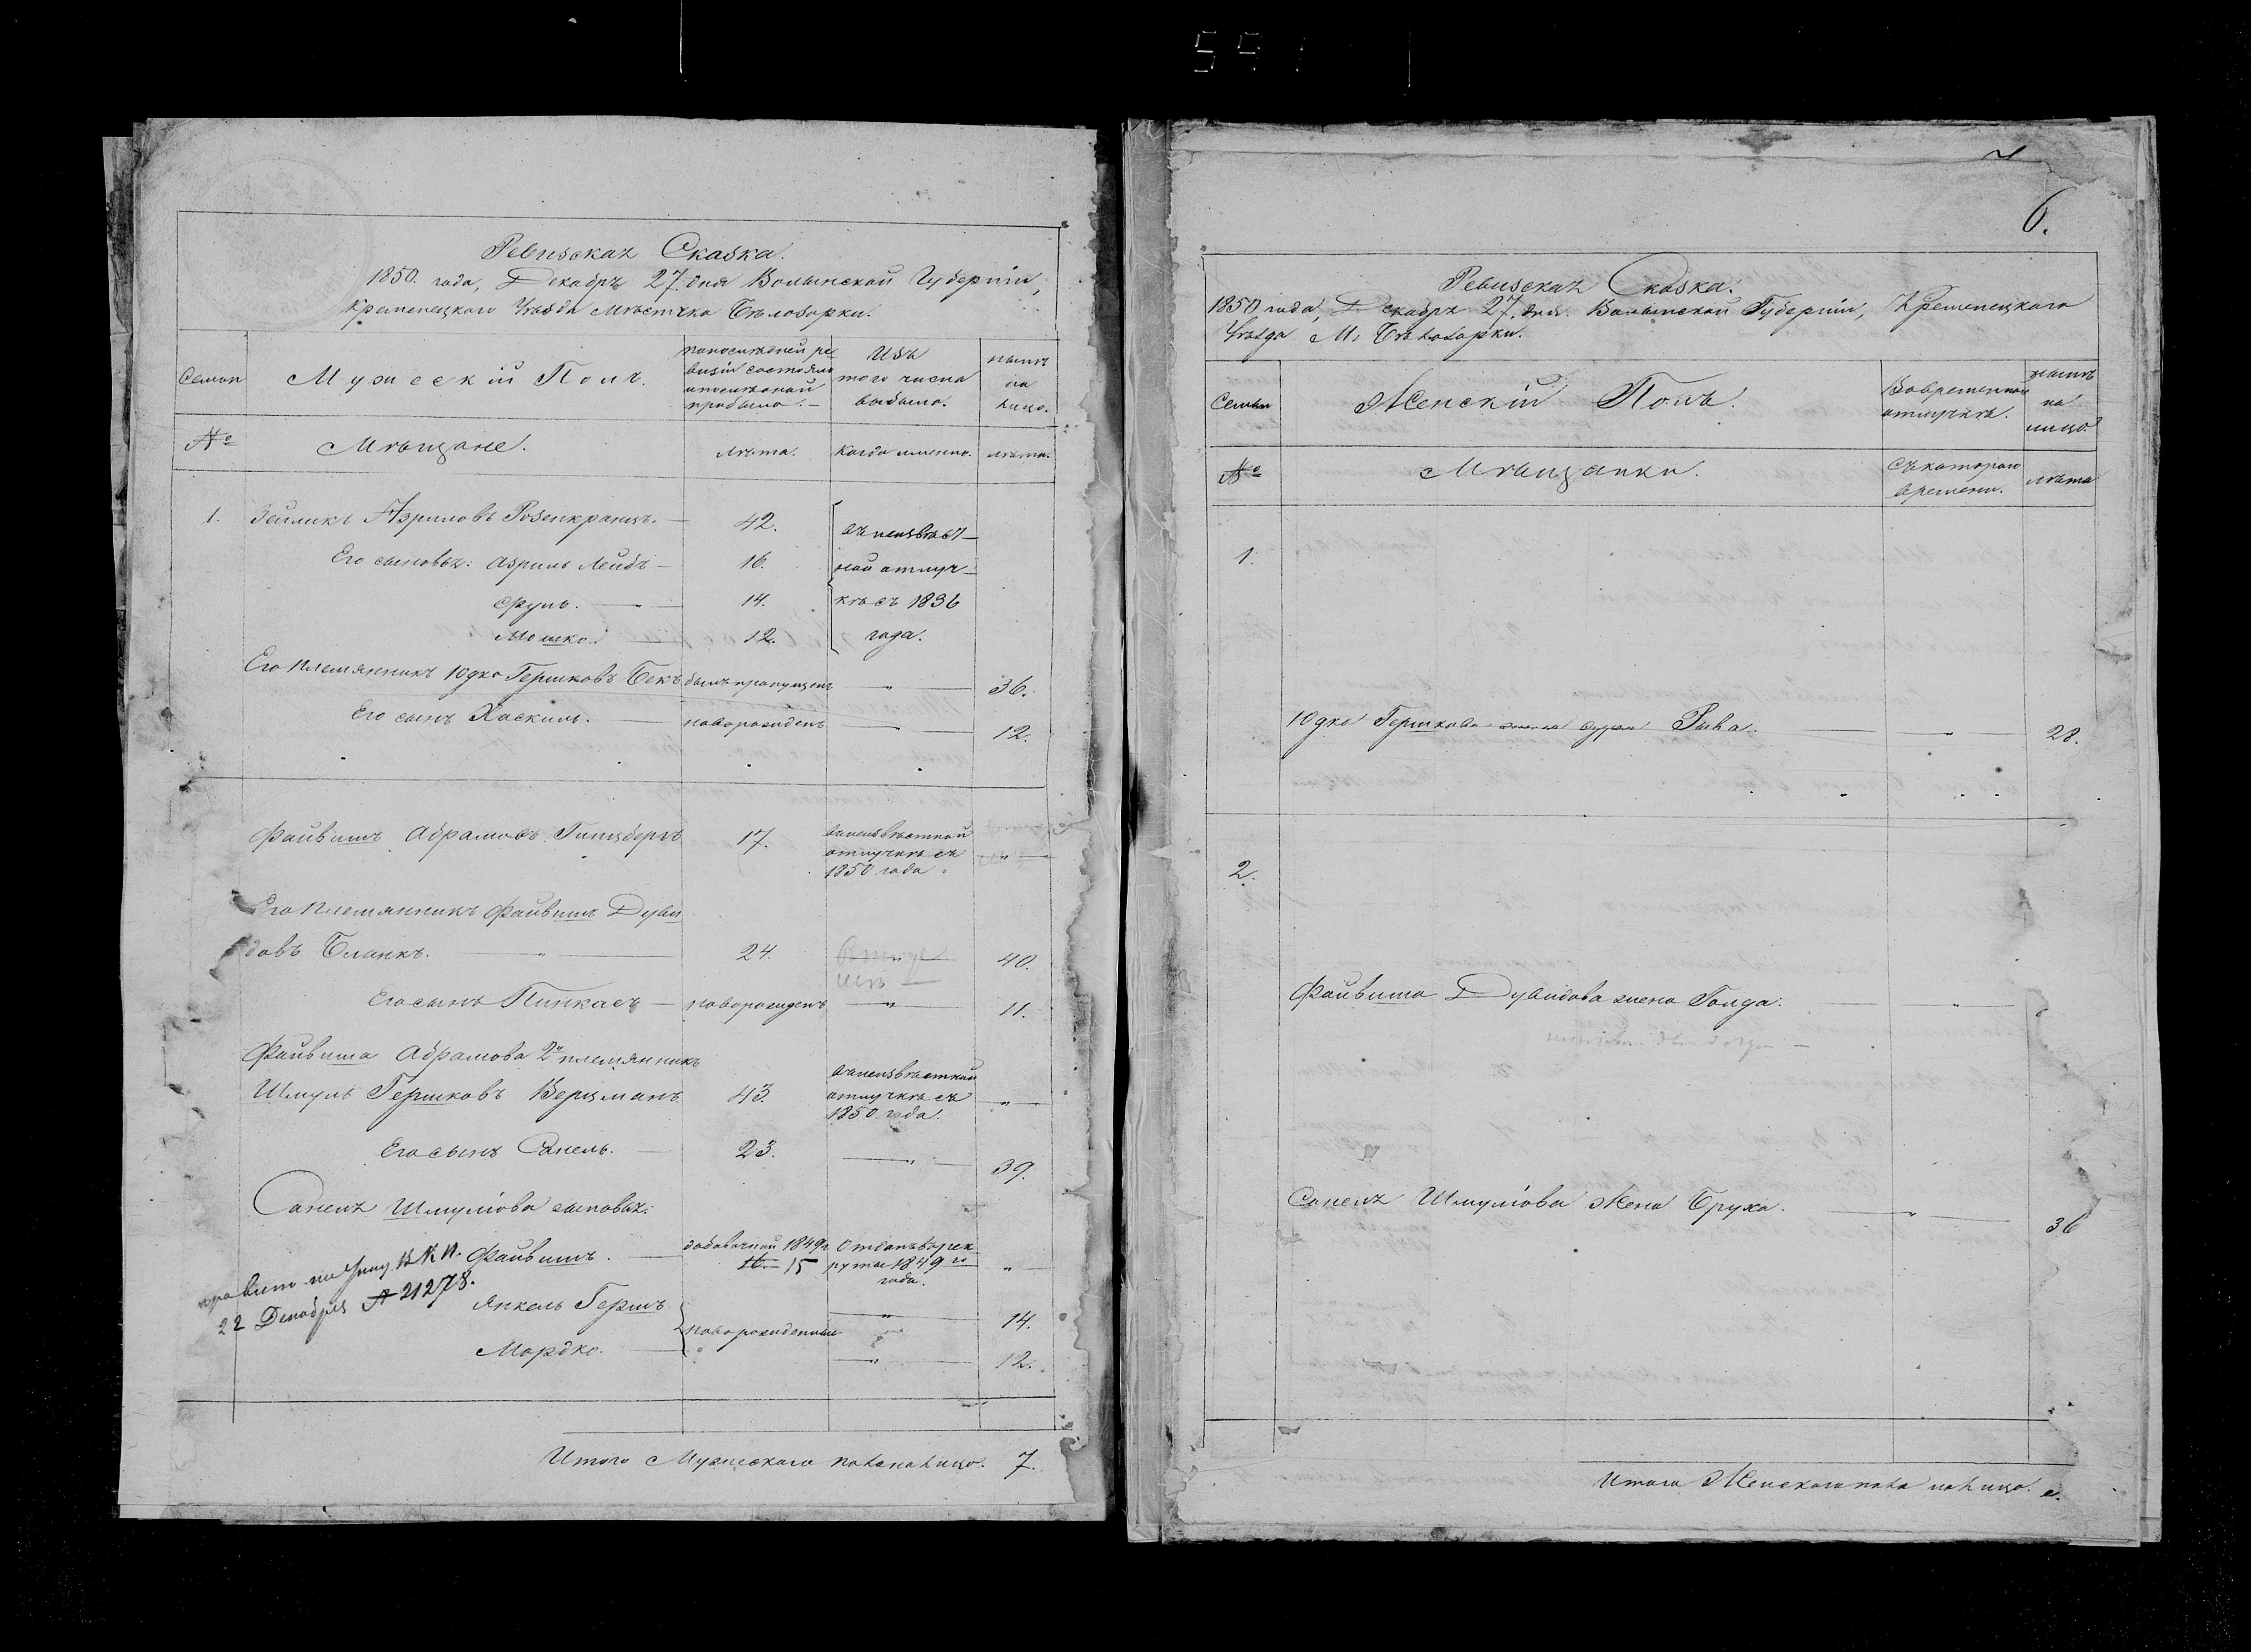 591
Ревизская Сказка.
1850. года, Декабрь 27. дня Волынской Губерніи,
Кременецкаго Уѣзда Мѣстечка Бѣлозорки.
Семьи
Мужескій Полъ.
по послѣдней ре
визіи состояло
и послѣ оной
прибыло. —
Изъ
того числа
выбыло.
нынѣ
на
лицо.
№
Мѣщане.
Лѣта.
Когда именно.
лѣта.
1. Зейликъ Азриловъ Розенкранцъ. — 42.
въ неизвѣст—
Его сыновья: Азриль Лейбъ — 16.
ной отлуч—
Сруль. — 14.
кѣ съ 1836
Мошко. — 12.
года.
Его племянникъ Юдко Гершковъ Бекъ былъ пропущенъ — " — 36.
Его сынъ Хаскиль. — новорожденъ — " — 12.
Файвишъ Абрамовъ Гинцберъ 17.
въ неизвѣстной
отлучкѣ съ
1850 года.
— " —
Его племянникъ Файвишъ Дуви
довъ Бланкъ. — " — 24. 40.
Его сынъ Пинкасъ — новорожденъ — " — 11.
Файвиша Абрамова 2й племянникъ
Шмуль Гершковъ Верцманъ. 43.
въ неизвѣстной
отлучкѣ съ
1850 года.
— " —
Его сынъ Санель. — 23. — " — 39.
Санеля Шмулiова сыновья:
Файвишъ. —
добавочной 1849г
16. 15
Отданъ в рек
руты 1849 го
года.
— " —
22 Декабря № 21278.
Янкель Гершъ — " — 14.
новорожденные
Мордко. — — " — 12.
Итого Мужескаго пола на лицо. 7.
6.
Ревизская Сказка.
1850 года, Декабрь 27. дня. Волынской Губерніи, Кременецкаго
Уѣзда М. Бѣлозорки.
Семьи
Женскій Полъ.
Во временной
отлучкѣ.
нынѣ
на
лицо.
№
Мѣщанки.
Съ котораго
времени.
лѣта
1.
Юдка Гершкова жена Рыва. — " — 28.
2.
Файвиша Дувидова жена Голда. — " —
Санеля Шмулiова Жена Бруха. — " — 36
Итого Женскаго пола на лицо.